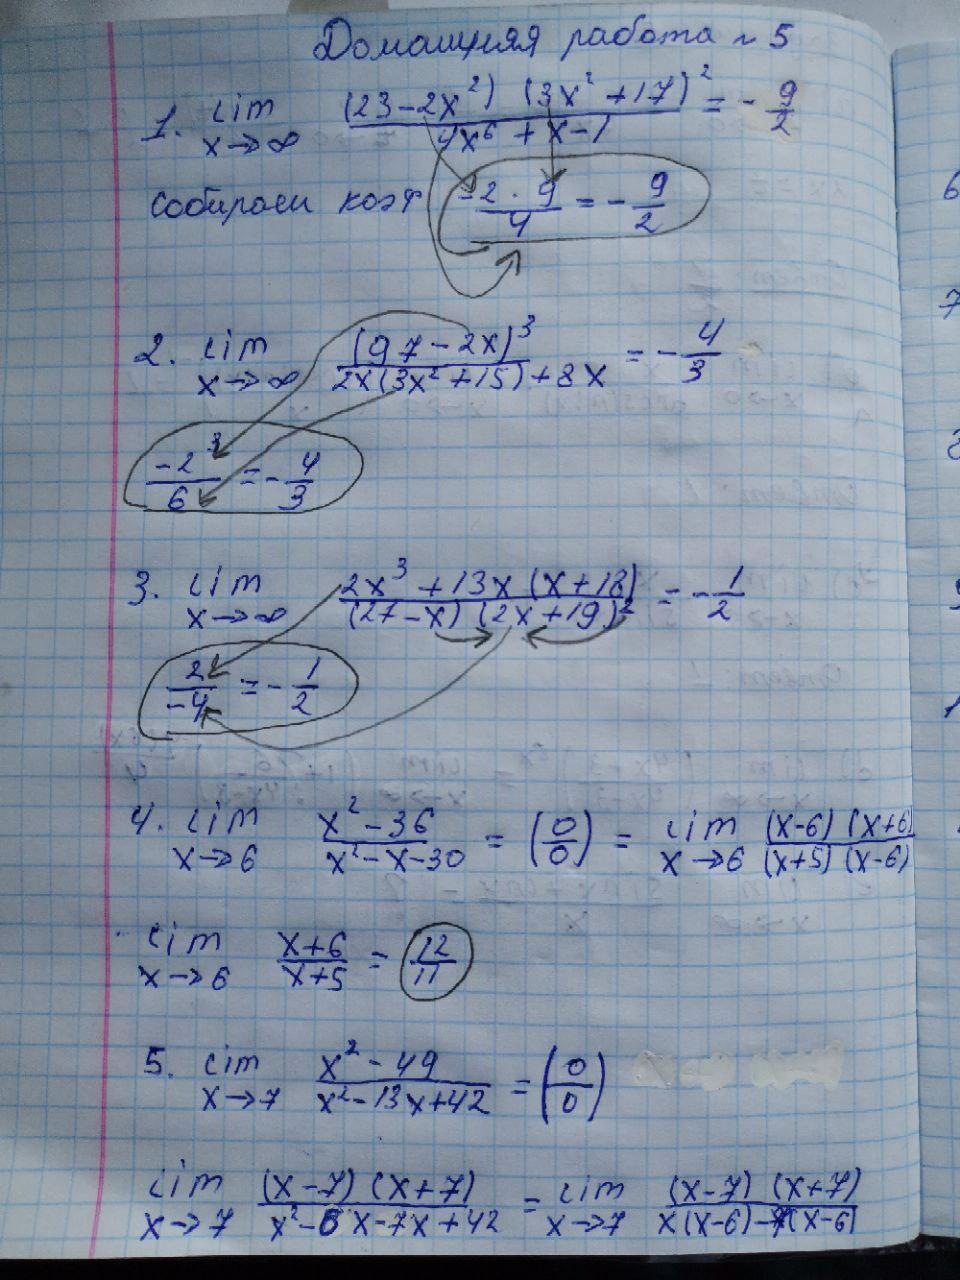 Домашняя работа №5
1. lim x→∞ (23-2x²) (3x²+17)² / 4x⁶+x-1 = -9/2
собираем коэф -2·9/4 = -9/2
2. lim x→∞ (97-2x)³ / 2x(3x²+15)+8x = -4/3
-2³/6 = -4/3
3. lim x→∞ 2x³+13x(x+18) / (27-x) (2x+19)² = -1/2
2/-4 = -1/2
4. lim x→6 x²-36 / x²-x-30 = (0/0) = lim x→6 (x-6) (x+6) / (x+5) (x-6)
lim x→6 x+6 / x+5 = 12/11
5. lim x→7 x²-49 / x²-13x+42 = (0/0)
lim x→7 (x-7) (x+7) / x²-6x-7x+42 = lim x→7 (x-7) (x+7) / x(x-6)-7(x-6)